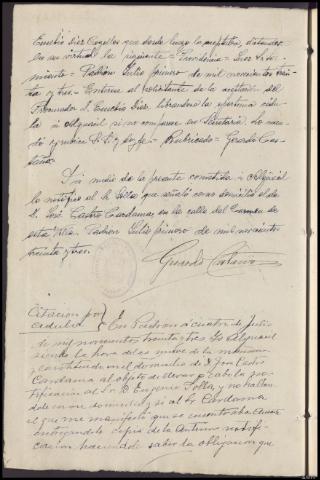 Eusebio Diez Cagollos que desde luego la aceptaba, dictando-
se en su virtud la siguiente = Providencia = Juez Sr.
miento = Padron Julio primero de mil novecientos trein-
ta y tres = Entérese al solicitante de la actitud del
Procurador D. Eusebio Diez, librandose la oportuna cédu-
la á Alguacil si no comparece en Secretaria. Lo man-
dó y rubrica S.Sª y doy fe = Rubricado = Gerardo
Por medio de la presente cometida á Alguacil
lo notifique al Sr. Solla que señaló como domicilio el de
D. José Castro Cardama, en la calle del Carmen de
esta Villa. Padron Julio primero de mil novecientos
treinta y tres.
Gerardo
Citacion por
cedula } En Padron á cuatro de Julio
de mil novecientos treinta y tres Yo Alguacil
siendo la hora de las nueve de la mañana
y constituido en el domicilio de D. José Castro
Cardama al objeto de llevar á cabo la no-
tificacion al Sr. D. Eugenio Solla, y no hallan-
dole en su domicilio y si al Sr. Cardama
el que me manifestó que se encontraba
entregandole copia de la Anterior notifi-
cacion haciendole saber la obligacion que